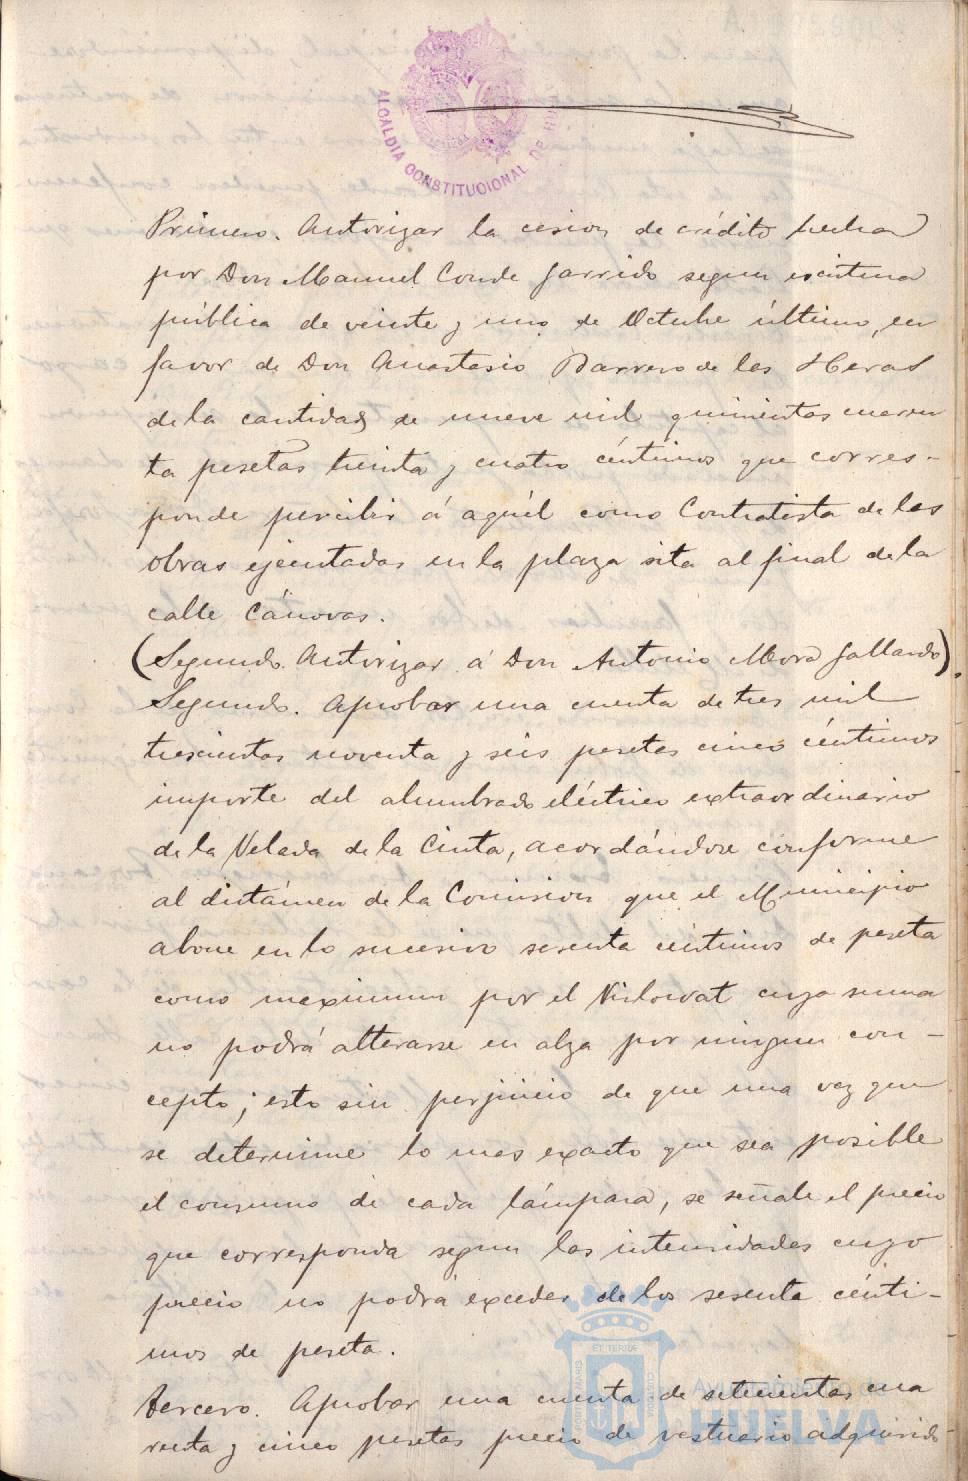 ALCALDIA CONSTITUCIONAL DE HU
Primero. Autorizar la cesion de crédito hecha
por Don Manuel Conde Garrido segun escritura
pública de veinte y uno de Octubre último, en
favor de Don Anastasio Barrero de las Heras
de la cantidad de nueve mil quinientas cuaren
ta pesetas treinta y cuatro céntimos que corres-
ponde percibir á aquél como Contratista de las
obras ejecutadas en la plaza sita al final de la
calle Cánovas.
(Segundo. Autorizar á Don Antonio Mora Gallardo).
Segundo. Aprobar una cuenta de tres mil
trescientas noventa y seis pesetas cinco céntimos
importe del alumbrado eléctrico extraordinario
de la Velada de la Cinta, acordándose conforme
al dictámen de la Comision que el Municipio
abone en lo sucesivo sesenta céntimos de peseta
como maximum por el Kilowat cuya suma
no podrá alterarse en alza por ningun con-
cepto; esto sin perjuicio de que una vez que
se determine lo mas exacto que sea posible
el consumo de cada lámpara, se señale el precio
que corresponda segun las intensidades cuyo
precio no podrá exceder de los sesenta cénti-
mos de peseta.
Tercero. Aprobar una cuenta de setecientas cua
renta y cinco pesetas precio de vestuario adquirido
Ayuntamiento de
HUELVA